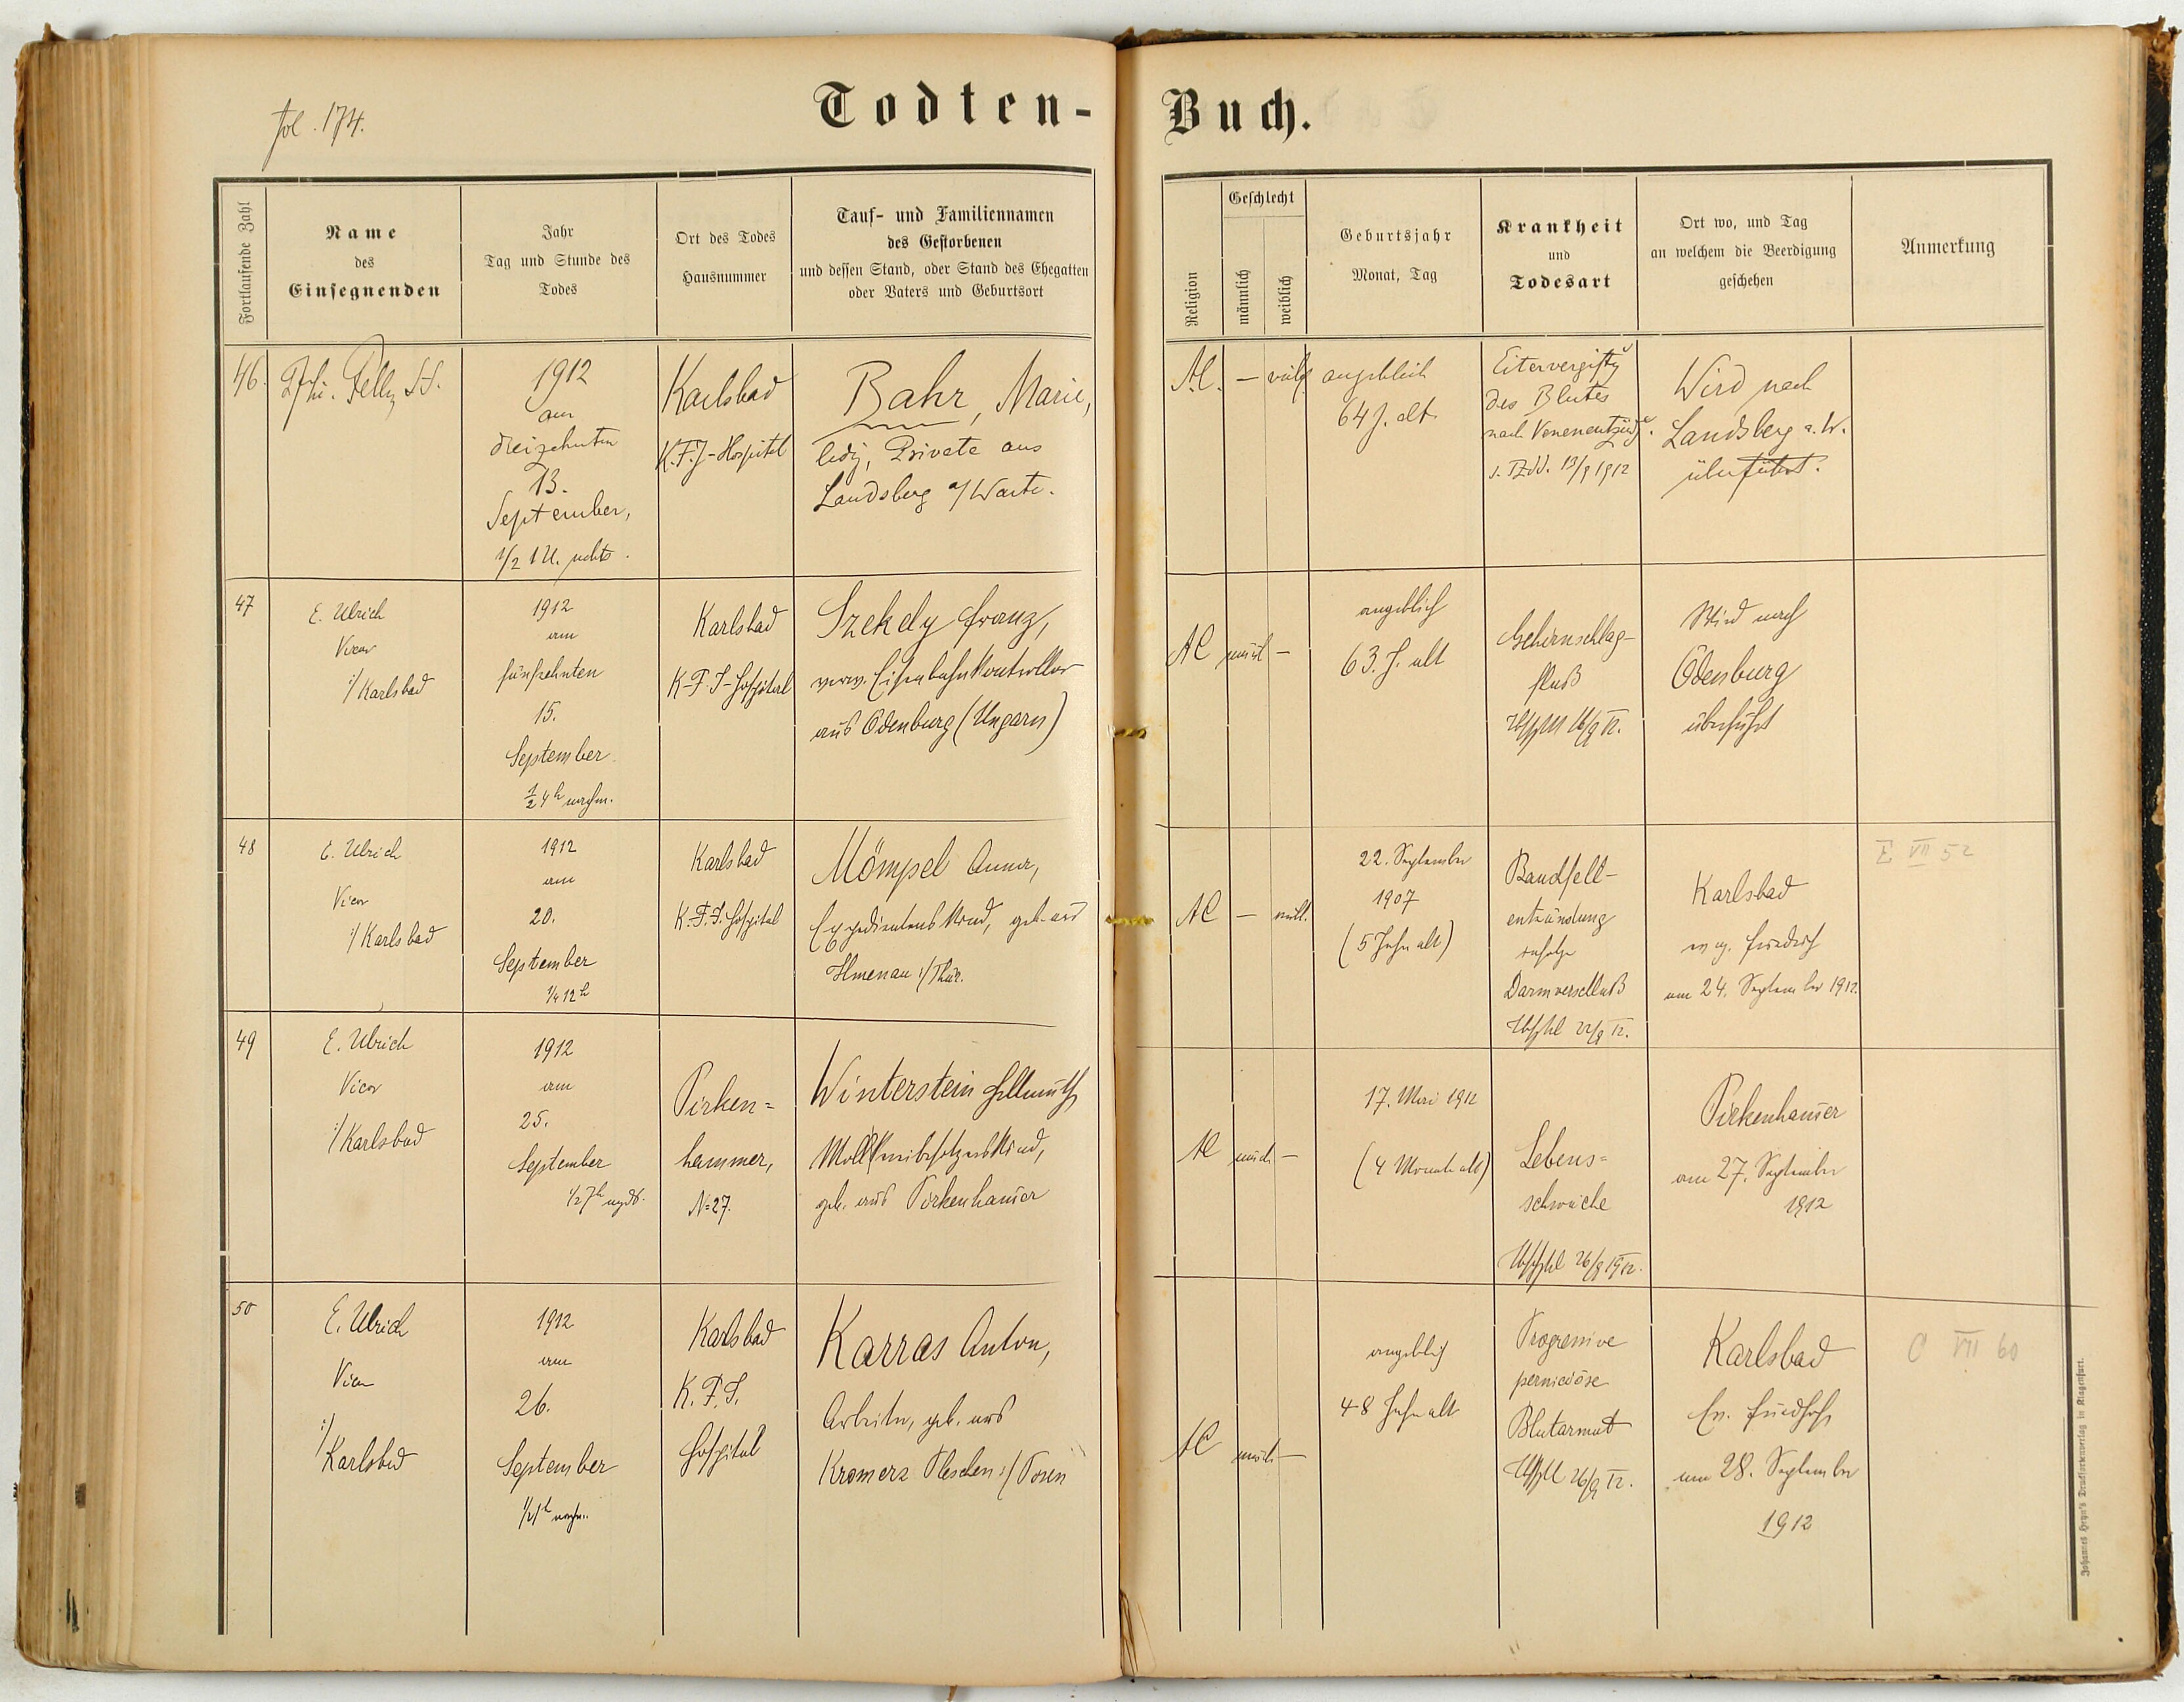 fol. 174.
Todten-Buch.
Fortlaufende Zahl
Name
des
Einsegnenden
Jahr
Tag und Stunde des
Todes
Ort des Todes
Hausnummer
Tauf- und Familiennamen
des Gestorbenen
und dessen Stand, oder Stand des Ehegatten
oder Vaters und Geburtsort
Religion
Geschlecht
männlich
weiblich
Geburtsjahr
Monat, Tag
Krankheit
und
Todesart
Ort wo, und Tag
an welchem die Beerdigung
geschehen
Anmerkung
46.
1912
am
dreizehnten
13.
September,
1/2 1 U. nchts.
Karlsbad
K.F.J-Hospital
Bahr, Marie,
ledig, Private aus
Landsberg a/Warte.
A.C.
—
angeblich
64 J. alt.
Eitervergiftg
des Blutes
nach Venenentzündg.
13/9 1912
Wird nach
Landsberg a. W.
überführt.
47
E. Ulrich
Vicar
i/Karlsbad
1912
am
fünfzehnten
15.
September
1/2 4h nachm.
Karlsbad
K-F-J-Hospital
Szekely Franz,
verw. Eisenbahnkontrollor
aus Ödenburg (Ungarn)
AC
männl
—
angeblich
63. J. alt
Gehirnschlag-
fluß
16/9 12.
Wird nach
Ödenburg
überführt
48
E. Ulrich
Vicar
i/Karlsbad
1912
am
20.
September
1/4 12h
Karlsbad
K.F.J.Hospital
Mömpel Anna,
Expedientens Kind, geb. aus
Ilmenau i/Thür.
AC
—
weibl.
22. September
1907
(5 Jahre alt)
Bauchfell-
entzündung
infolge
Darmverschluß
22/9 12.
Karlsbad
ev. Friedhof
am 24. September 1912.
E VII 52
49
E. Ulrich
Vicar
i/Karlsbad
1912
am
25.
September
1/2 7h
Pirken=
hammer,
N=27.
Winterstein Hellmuth
geb. aus Pirkenhammer
AC
männl
—
17. Mai 1912
(4 Monate alt)
Lebens=
schwäche
26/9 1912.
Pirkenhammer
am 27. September
1912
50
E. Ulrich
Vicar
i/
Karlsbad
1912
am
26.
September
1/2 1h nachm.
Karlsbad
K.F.J.
Hospital
Karras Anton,
Arbeiter, geb. aus
Kromerz Pleschen i/Posen
AC
männl
—
angeblich
48 Jahre alt
Progressive
perniciöse
Blutarmut
26/9 12.
Karlsbad
Ev. Friedhof
am 28. September
1912
C VII 60
Johannes Heyn's Drucksortenverlag in Klagenfurt.